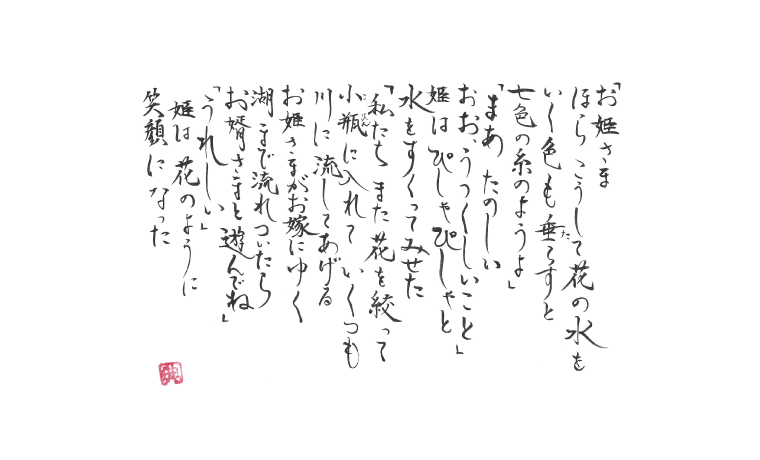 「お姫さま
ほら こうして花の水を
いく色も垂らすと
七色の糸のようよ」
「まあ たのしい
おお、うつくしいこと」
姫は ぴしゃぴしゃと
水をすくってみせた
「私たち また 花を絞って
小瓶に入れて いくつも
川に流してあげる
お姫さまがお嫁にゆく
湖まで流れついたら
お婿さまと遊んでね」
「うれしい」
姫は 花のように
笑顔になった